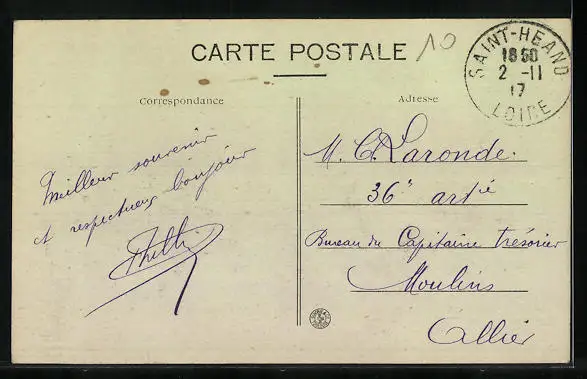 CARTE POSTALE
10
SAINT-HEAND
18 50
2 -11
17
LOIRE
Correspondance
Adresse
Meilleur souvenir
et respectueux bonjour
M. C. Laronde.
36e artie
Bureau du Capitaine trésorier
Moulins
Allier